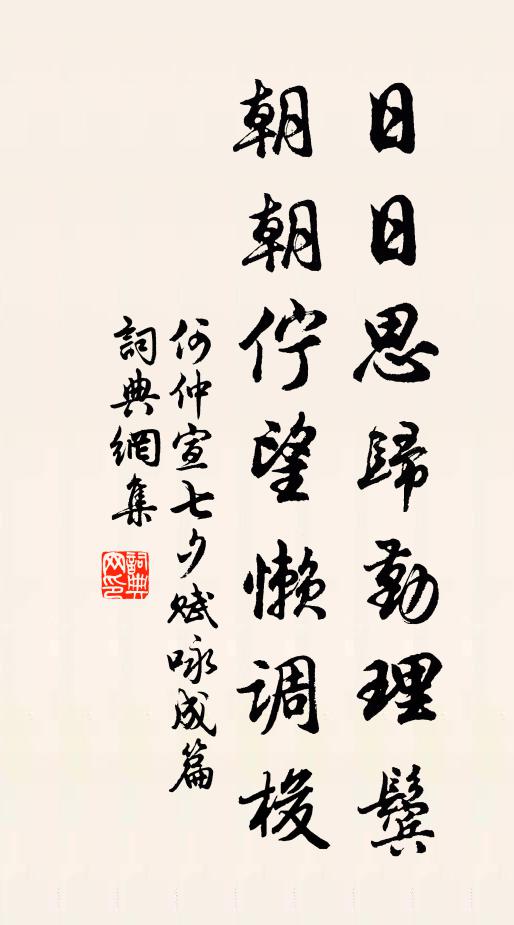 日日思歸勤理鬓
朝朝佇望懶调梭
何仲宣七夕賦咏成篇
詞典網集
詞典网印